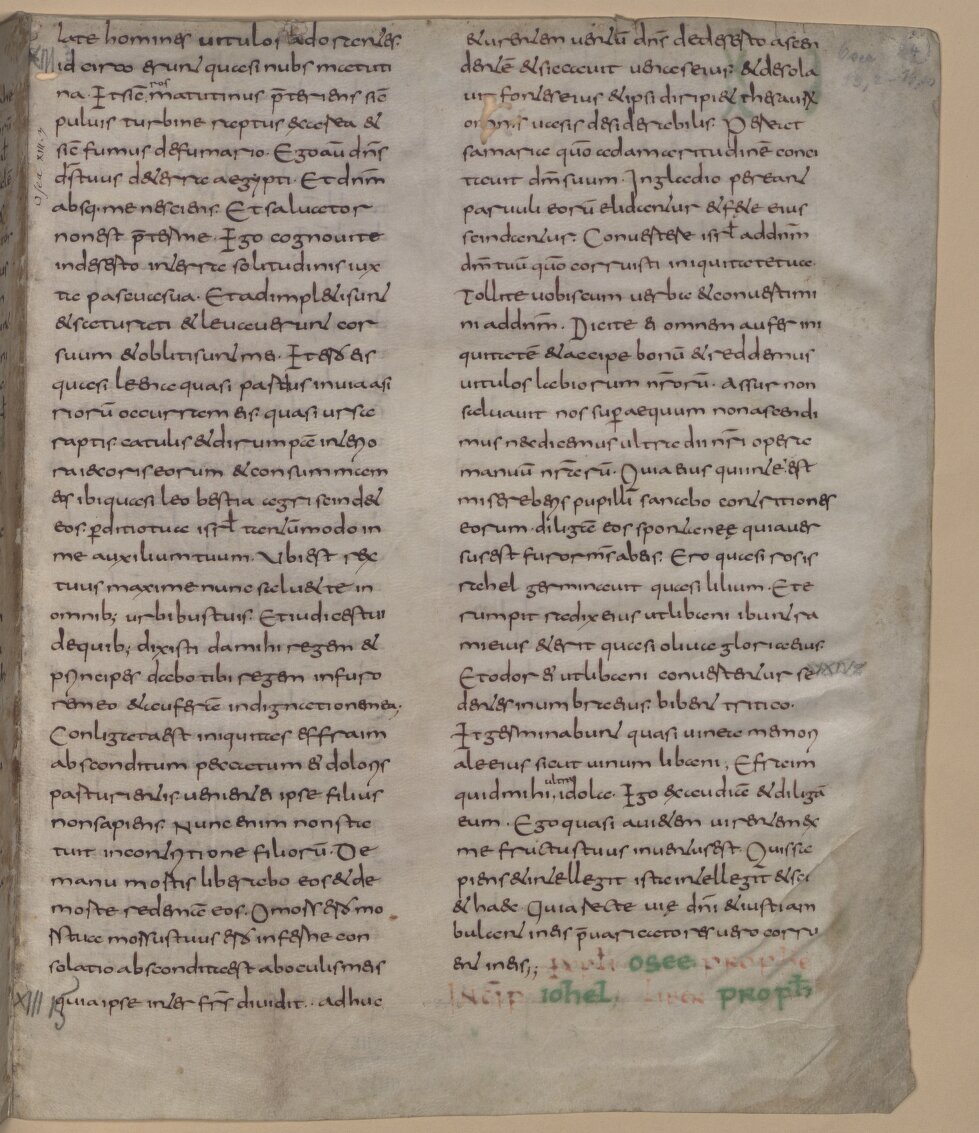 late homines uitulos adorantes
id circo erunt quasi nubs matuti
na. Et sic̄ ros matutinus p̄teriens sic̄
puluis turbine raptus ex area et
sic̄ fumus defumario. Ego aū dn̄s
ds̄ tuus deterra aegypti. Et dn̄m
absq; me nesciens. Et saluator
non est p̄terme. Ego cognoui te
indeserto interra solitudinis iux
ta pascua sua. Et adimpleti sunt
et saturati et leuauerunt cor
suum et obliti sunt mei. Et ero eis
quasi leena quasi pardus inuia asi
riorū occurram eis. quasi ursa
raptis catulis et dirumpam interio
ra iecoris eorum et consummam
eos ibi quasi leo bestia agri scindet
eos. p̱ditio tua isrl̄ tantūmodo in
me auxilium tuum. Ubi est rex
tuus maxime nunc saluet te in
omnib; urbibus tuis. Et iudices tui
dequib; dixisti da mihi regem et
principes dabo tibi regem in furo
re meo et auferā indignatione mea.
Conligata est iniquitas effraim
absconditum peccatum ei dolores
parturientis uenient ei ipse filius
non sapiens. Nunc enim non sta
bit incontritione filiorū. De
manu mortis liberabo eos et de
morte redimā eos. O mors ero mo
rs tua morsus tuus ero inferne con
solatio abscondita est aboculis meis
XIII quia ipse inter frs̄ diuidit. adhuc
et urentem uentū dn̄s dedeserto ascen
dentē et siccauit uenas eius et desola
uit fontes eius et ipsi diripiet thesaurū
omnis uasis desiderabilis. Pereat
samaria quō adamaritudinē conci
tauit dm̄ suum. In gladio pereant
paruuli eorū elidantur et fete eius
scindantur. Conuertere isrl̄ addn̄m
dm̄ tuū quō corruisti iniquitate tua.
Tollite uobiscum uerba et conuertimi
ni addn̄m. Dicite ei omnem aufer ini
quitatē et accipe bonū et reddemus
uitulos labiorum nr̄orū. Assur non
saluauit nos sup̱ aequum non ascendi
mus nec dicemus ultra dii nr̄i opera
manuū nr̄arū. Quia eius qui inte est
misereberis pupilli sanabo contritiones
eorum. diligā eos spontaneę quia uer
sus est furor ms̄ abeis. Ero quasi ros is
rahel germinauit quasi lilium. Et e
rumpit radix eius utlibani ibunt ra
mi eius et erit quasi oliua gloria eius
Et odor ei utlibani conuertentur se
dentes inumbra eius. bibent tritico.
Et germinabunt quasi uinea memori
ale eius sicut uinum libani, Efraim
quid mihi ultra idola. Ego exaudiā et diligā
eum. Ego quasi auietem uirentem ex
me fructus tuus inuentus est. Quis sa
piens et intellegit ista intellegit et sci
et haec Quia recte uię dn̄i et iusti am
bulant ineis p̄uaricatores uero corru
ent ineis;; Expl̄i osee prophe
INCIP iohel. Liber proph̄